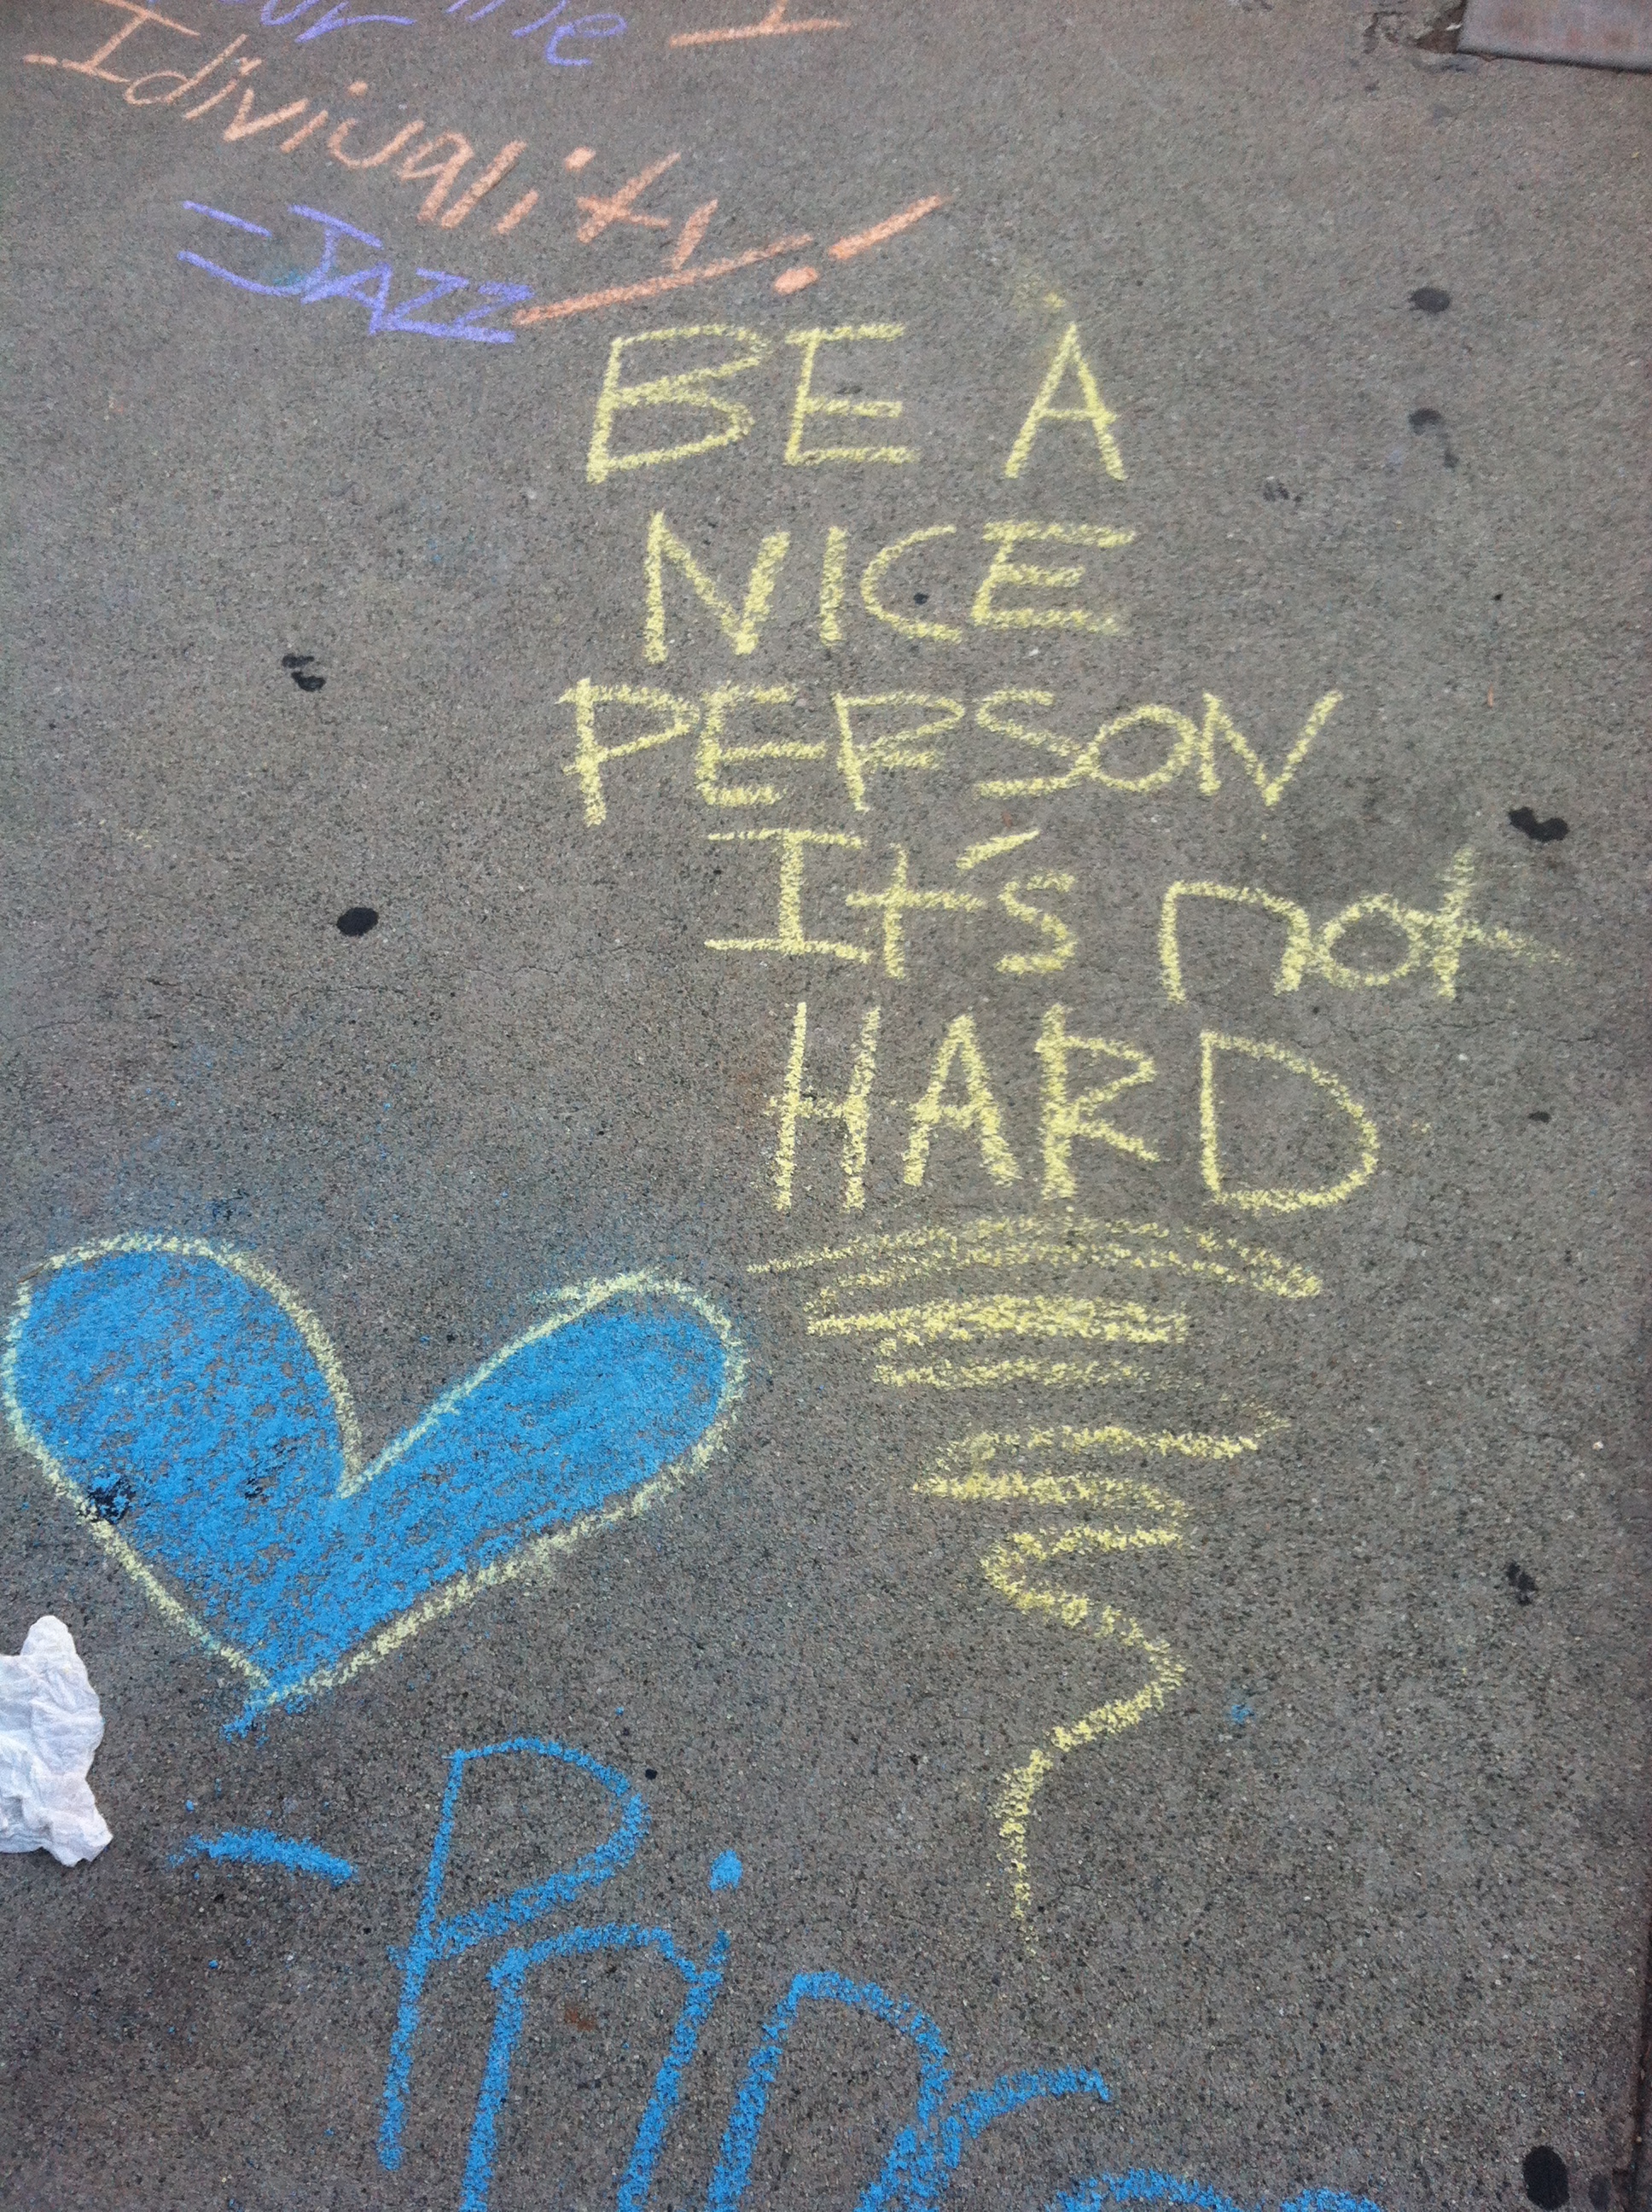 Idiviuality!
-JAZZ
BE A
NICE
PERSON
It's not
HARD